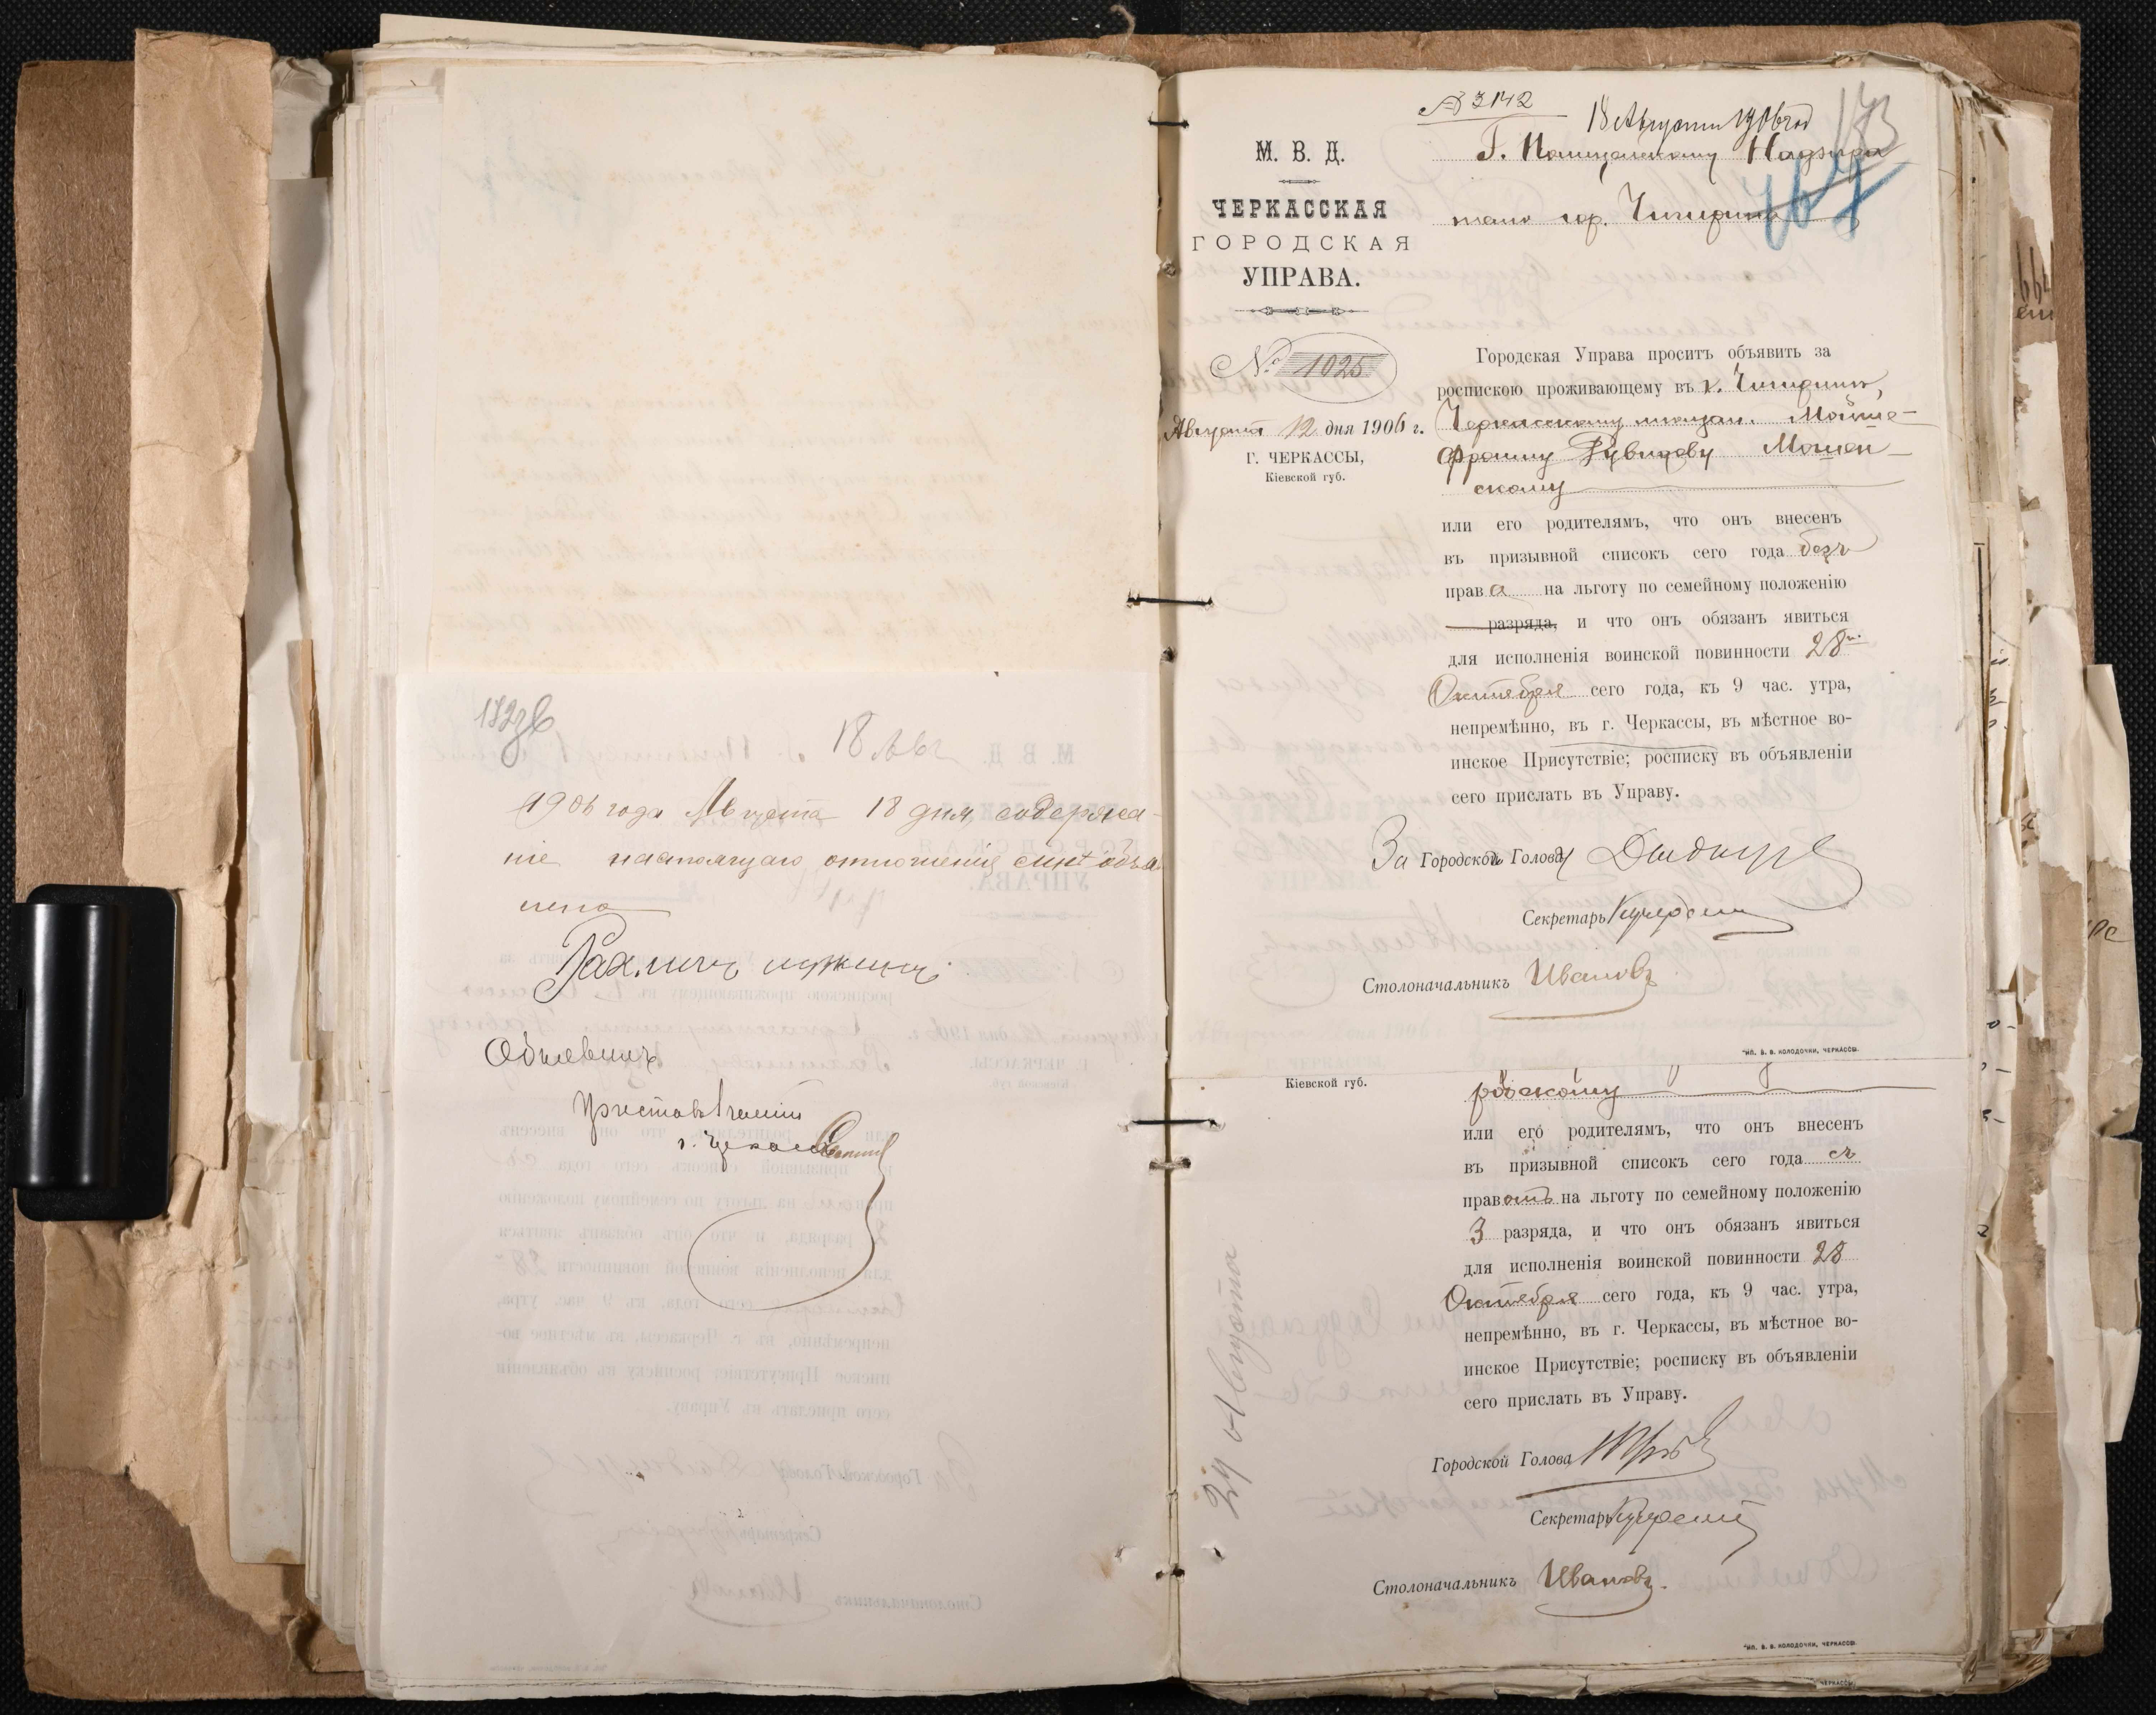 182 об
18 Авг
1906 года Августа 18 дня, содержа-
ніе настоящаго отношенія мнѣ объяв
лено
Рахмил
Объявилъ
Приставъ
г.
№ 3142
18 Августа 1906 год
183
Г. Полицейскому Надзира
М. В. Д.
телю гор. Чигирина
167
ЧЕРКАССКАЯ
ГОРОДСКАЯ
УПРАВА.
№ 1025
Августа 12 дня 1906 г.
Г. ЧЕРКАССЫ,
Кіевской губ.
Городская Управа проситъ объявить за
роспискою проживающему въ г. Чигиринѣ,
Черкасскому мещан. Мойше-
Фроиму Рувинову Мошен-
скому
или его родителямъ, что онъ внесенъ
въ призывной списокъ сего года безъ
права на льготу по семейному положенію
разряда, и что онъ обязанъ явиться
для исполненія воинской повинности 28го
Октября сего года, къ 9 час. утра,
непремѣнно, въ г. Черкассы, въ мѣстное во-
инское Присутствіе; росписку въ объявленіи
сего прислать въ Управу.
За Городского Голову
Секретарь
Столоначальникъ Ивановъ
Тип. В. В. КОЛОДОЧКИ, ЧЕРКАССЫ.
Кіевской губ.
скому
или его родителямъ, что онъ внесенъ
въ призывной списокъ сего года съ
правомъ на льготу по семейному положенію
3 разряда, и что онъ обязанъ явиться
для исполненія воинской повинности 28
Октября сего года, къ 9 час. утра,
непремѣнно, въ г. Черкассы, въ мѣстное во-
инское Присутствіе; росписку въ объявленіи
сего прислать въ Управу.
24 Августа
Городской Голова
Секретарь
Столоначальникъ Ивановъ.
Тип. В. В. КОЛОДОЧКИ, ЧЕРКАССЫ.
ЧЕРКАССЫ